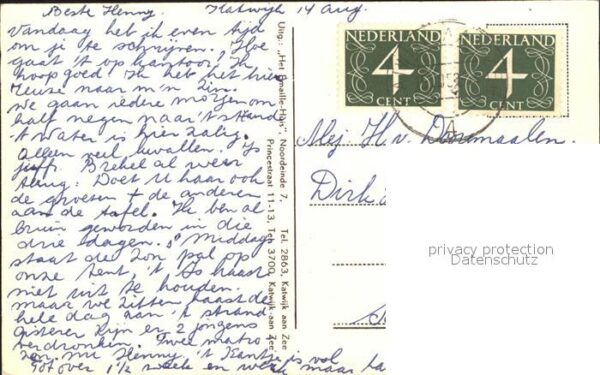 Beste Henny. Katwijk 14 Aug.
Vandaag heb ik even tijd
om je te schrijven. Hoe
gaat 't op kantoor, Ik
hoop goed. Ik heb het hier
reuze naar m'n zin.
we gaan iedere morgen om
half negen naar 't strand
't water is hier zalig.
Alleen veel kwallen. Is
juff. Brekel al weer
terug. Doet U haar ook
de groeten + de anderen
aan de tafel. Ik ben al
bruin geworden in die
drie dagen. 's Middag
staat de zon pal op
onze tent, 't is haast
niet uit te houden.
maar we zitten haast de
hele dag aan 't strand
gisteren zijn er 2 jongens
verdronken. Twee matro
zen. nu Henny 't kantje is vol
Tot over 1½ week en maar
Uitg.: „Het Emaille-Huis", Noordeinde 7, Tel. 2863, Katwijk aan Zee
Princestraat 11-13, Tel. 3700, Katwijk aan Zee
NEDERLAND
4
CENT
NEDERLAND
4
CENT
Mej H. v. Doormaalen.
Dirk
privacy protection
Datenschutz